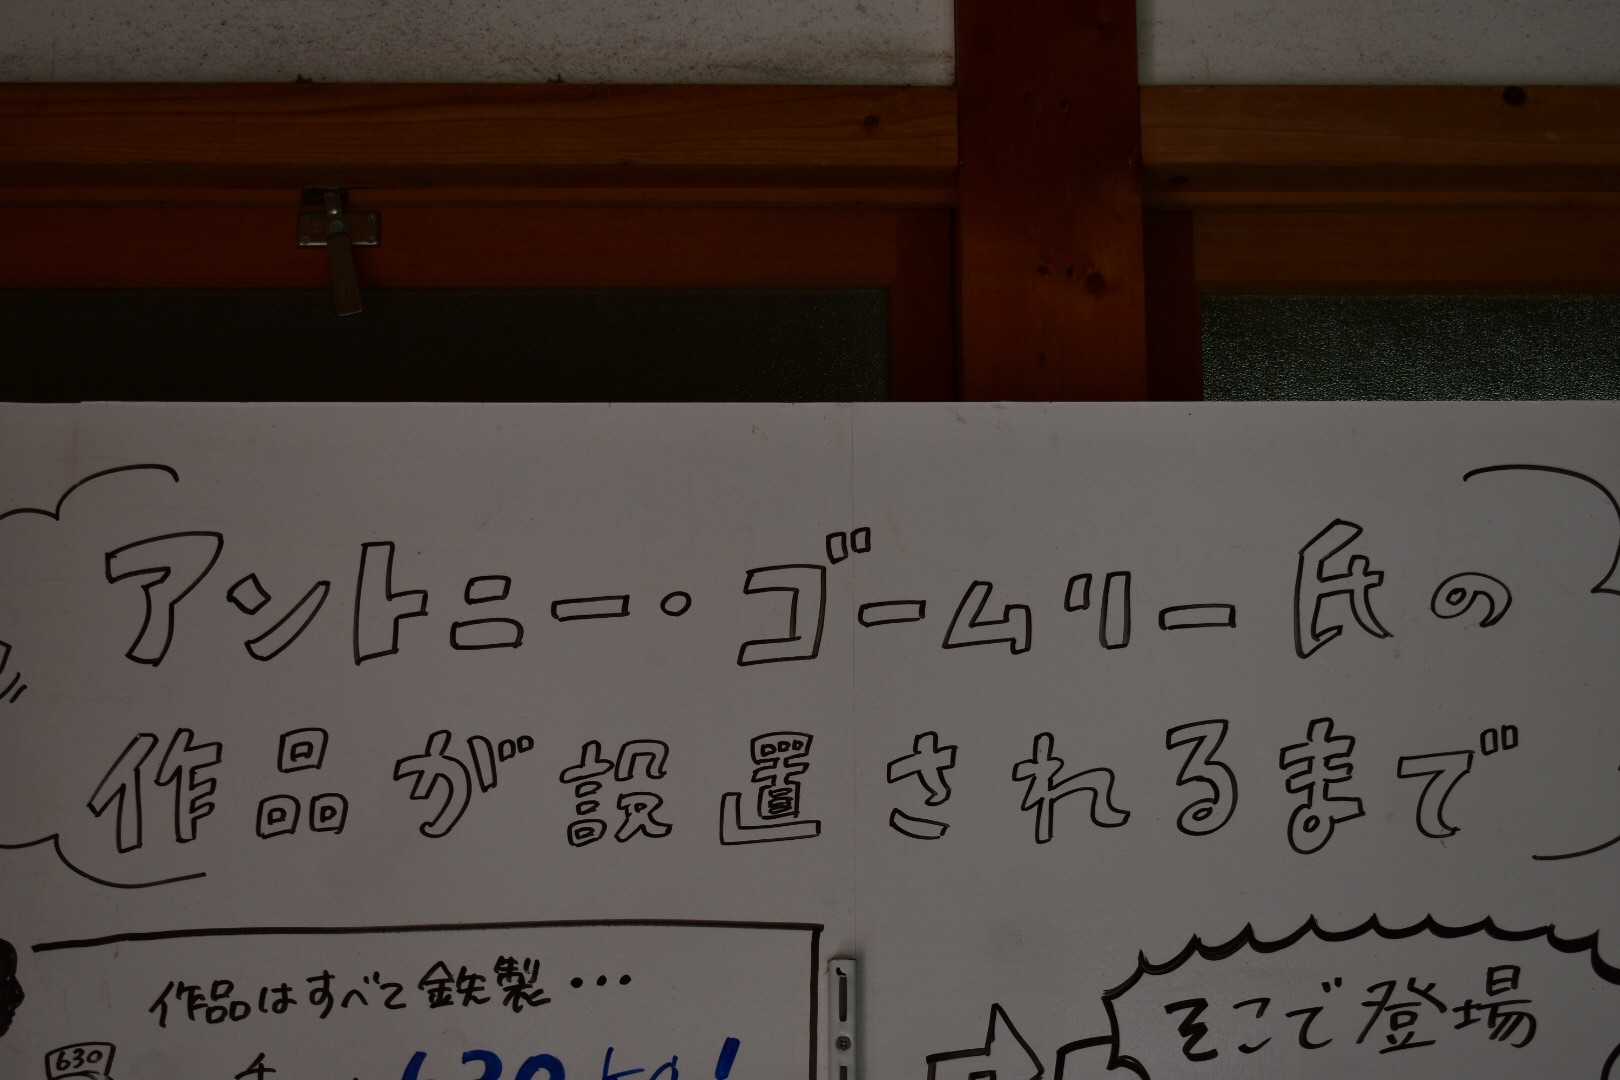 アントニー・ゴームリー氏の
作品が設置されるまで
作品はすべて鉄製・・・
そこで登場
630
630kg!